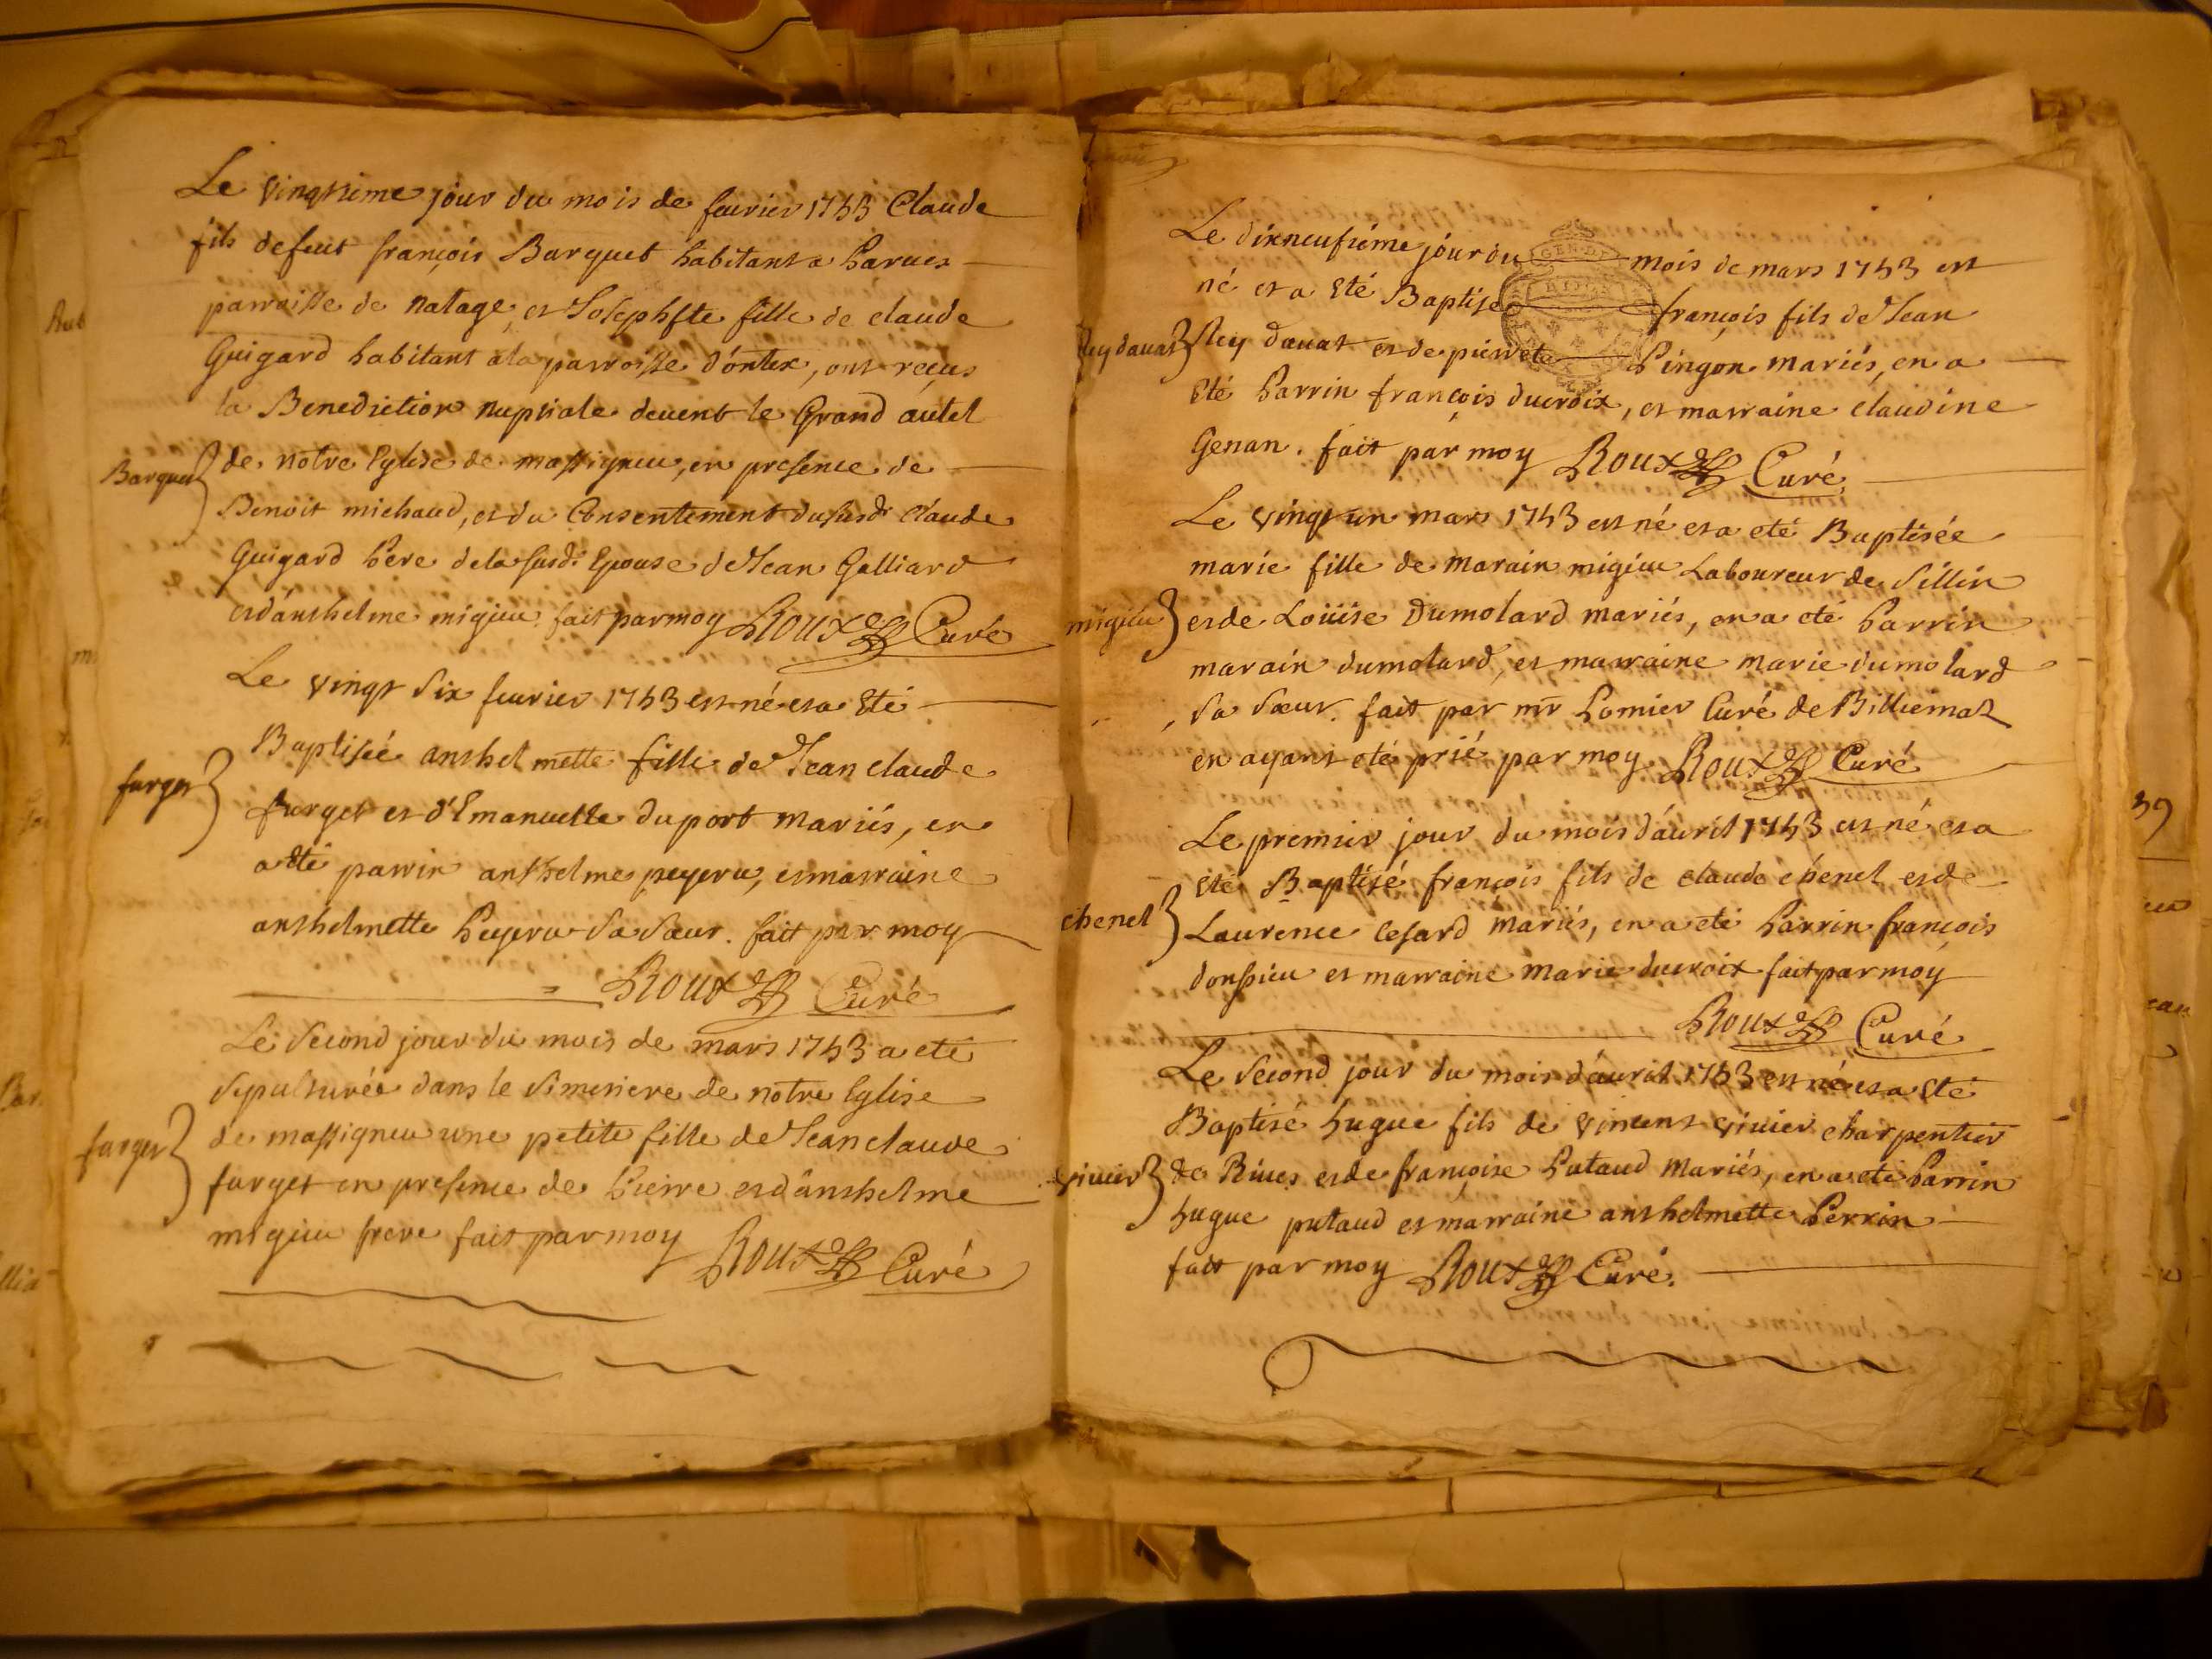 Le vingtieme jour du mois de feurier 1743 Claude
fils defeut françois Barquet habitant a Parues
parroisse de natage et Josephte fille de claude
Guigard habitant ala parroisse d'ontex, ont reçus
la Benediction nuptiale deuent le Grand autel
Barquet
de notre Eglise de massigneu, en presence de
Benoit michaud, et du Consentement dususdt claude
Guigard Pere dela susd. Epouse de Jean Galliard
et d'anthelme migieu fait par moy Roux Curé
Le vingt six feurier 1743 est né et a Eté
Baptisée anthelmette fille de Jean claude
furget
furget et d'Emanuelle duport mariés, en
a Eté parrin anthelme peyeru, et marraine
anthelmette Peyeru sa sœur. fait par moy
Roux Curé
Le second jour du mois de mars 1743 a eté
sepulturée dans le simetiere de notre Eglise
furget
de massigneu une petite fille de Jean claude
furget en presence de Pierre et d'anthelme
migieu frere fait par moy Roux Curé
Le dixneufiéme jour du mois de mars 1743 est
né et a Eté Baptisé françois fils de Jean
Rey dauat
Rey dauat et de pierrete Pingon mariés, en a
Eté Parrin françois ducroix, et marraine claudine
Genan. fait par moy Roux Curé
Le vingt un mars 1743 est né et a eté Baptisée
marie fille de marain migieu Laboureur de sillin
migieu
et de Loüise Dumolard mariés, en a eté Parrin
marain dumolard, et marraine marie dumolard
sa sœur. fait par mr Pomier Curé de Billiemaz
en ayant eté prié par moy Roux Curé
Le premier jour du mois d'auril 1743 est né et a
Eté Baptisé françois fils de claude chenel et de
chenel
Laurence Cesard mariés, en a eté Parrin françois
donssieu et marraine marie ducroix fait par moy
Roux Curé
Le second jour du mois d'auril 1743 est né et a Eté
Baptisé hugue fils de vincent viuier charpentier
viuier
de Riues et de françoise Putaud mariés, en a eté Parrin
hugue putaud et marraine anthelmette Perrin
fait par moy Roux Curé.
39